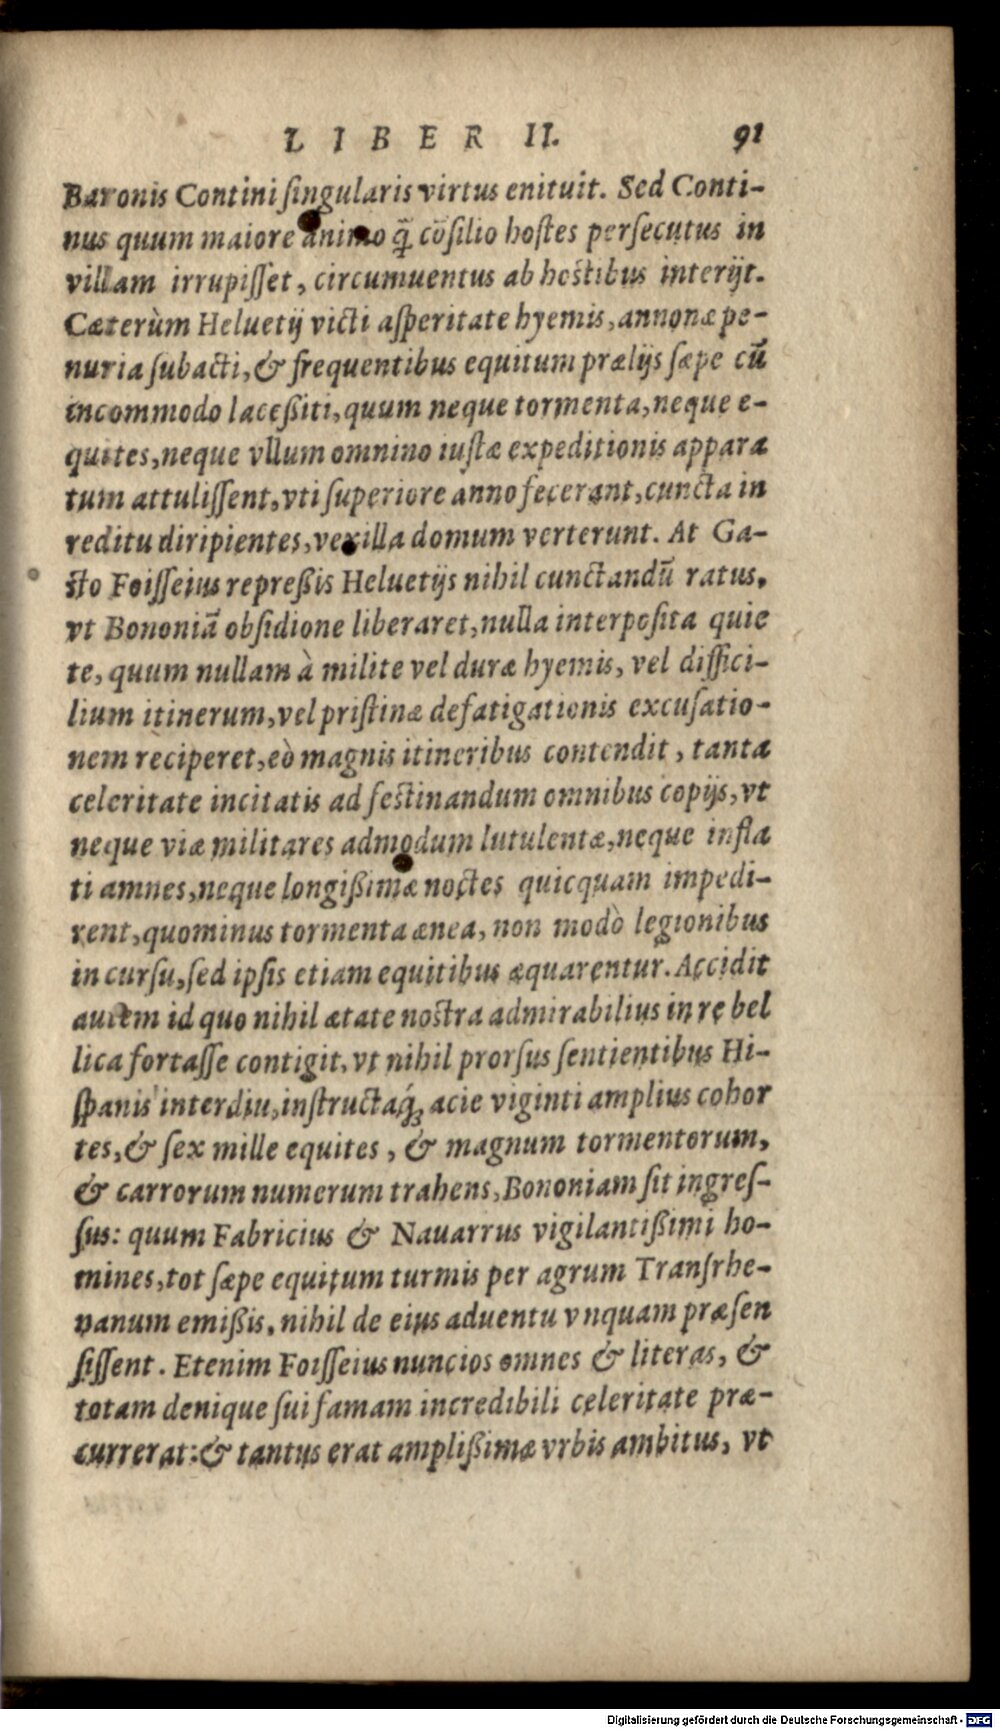 LIBER II. 91
Baronis Contini ſingularis virtus enituit. Sed Conti-
nus quum maiore animo q̃ cõſilio hoſtes perſecutus in
villam irrupiſſet, circumuentus ab hoſtibus interijt.
Cæterùm Heluetij victi aſperitate hyemis, annonæ pe-
nuria ſubacti, & frequentibus equitum prælijs ſæpe cũ
incommodo laceßiti, quum neque tormenta, neque e-
quites, neque vllum omnino iuſtæ expeditionis appara
tum attuliſſent, vti ſuperiore anno fecerant, cuncta in
reditu diripientes, vexilla domum verterunt. At Ga-
ſto Foiſſeius repreßis Heluetijs nihil cunctandũ ratus,
vt Bononiã obſidione liberaret, nulla interpoſita quie
te, quum nullam à milite vel duræ hyemis, vel diffici-
lium itinerum, vel priſtinæ defatigationis excuſatio-
nem reciperet, eò magnis itineribus contendit, tanta
celeritate incitatis ad feſtinandum omnibus copijs, vt
neque viæ militares admodum lutulentæ, neque infla
ti amnes, neque longißimæ noctes quicquam impedi-
rent, quominus tormenta ænea, non modò legionibus
in curſu, ſed ipſis etiam equitibus æquarentur. Accidit
autem id quo nihil ætate noſtra admirabilius in re bel
lica fortaſſe contigit, vt nihil prorſus ſentientibus Hi-
ſpanis interdiu, inſtructaq́; acie viginti amplius cohor
tes, & ſex mille equites, & magnum tormentorum,
& carrorum numerum trahens, Bononiam ſit ingreſ-
ſus: quum Fabricius & Nauarrus vigilantißimi ho-
mines, tot ſæpe equitum turmis per agrum Tranſrhe-
nanum emißis, nihil de eius aduentu vnquam præſen
ſiſſent. Etenim Foiſſeius nuncios omnes & literas, &
totam denique ſui famam incredibili celeritate præ-
currerat: & tantus erat amplißimæ vrbis ambitus, vt
Digitalisierung gefördert durch die Deutsche Forschungsgemeinschaft - DFG